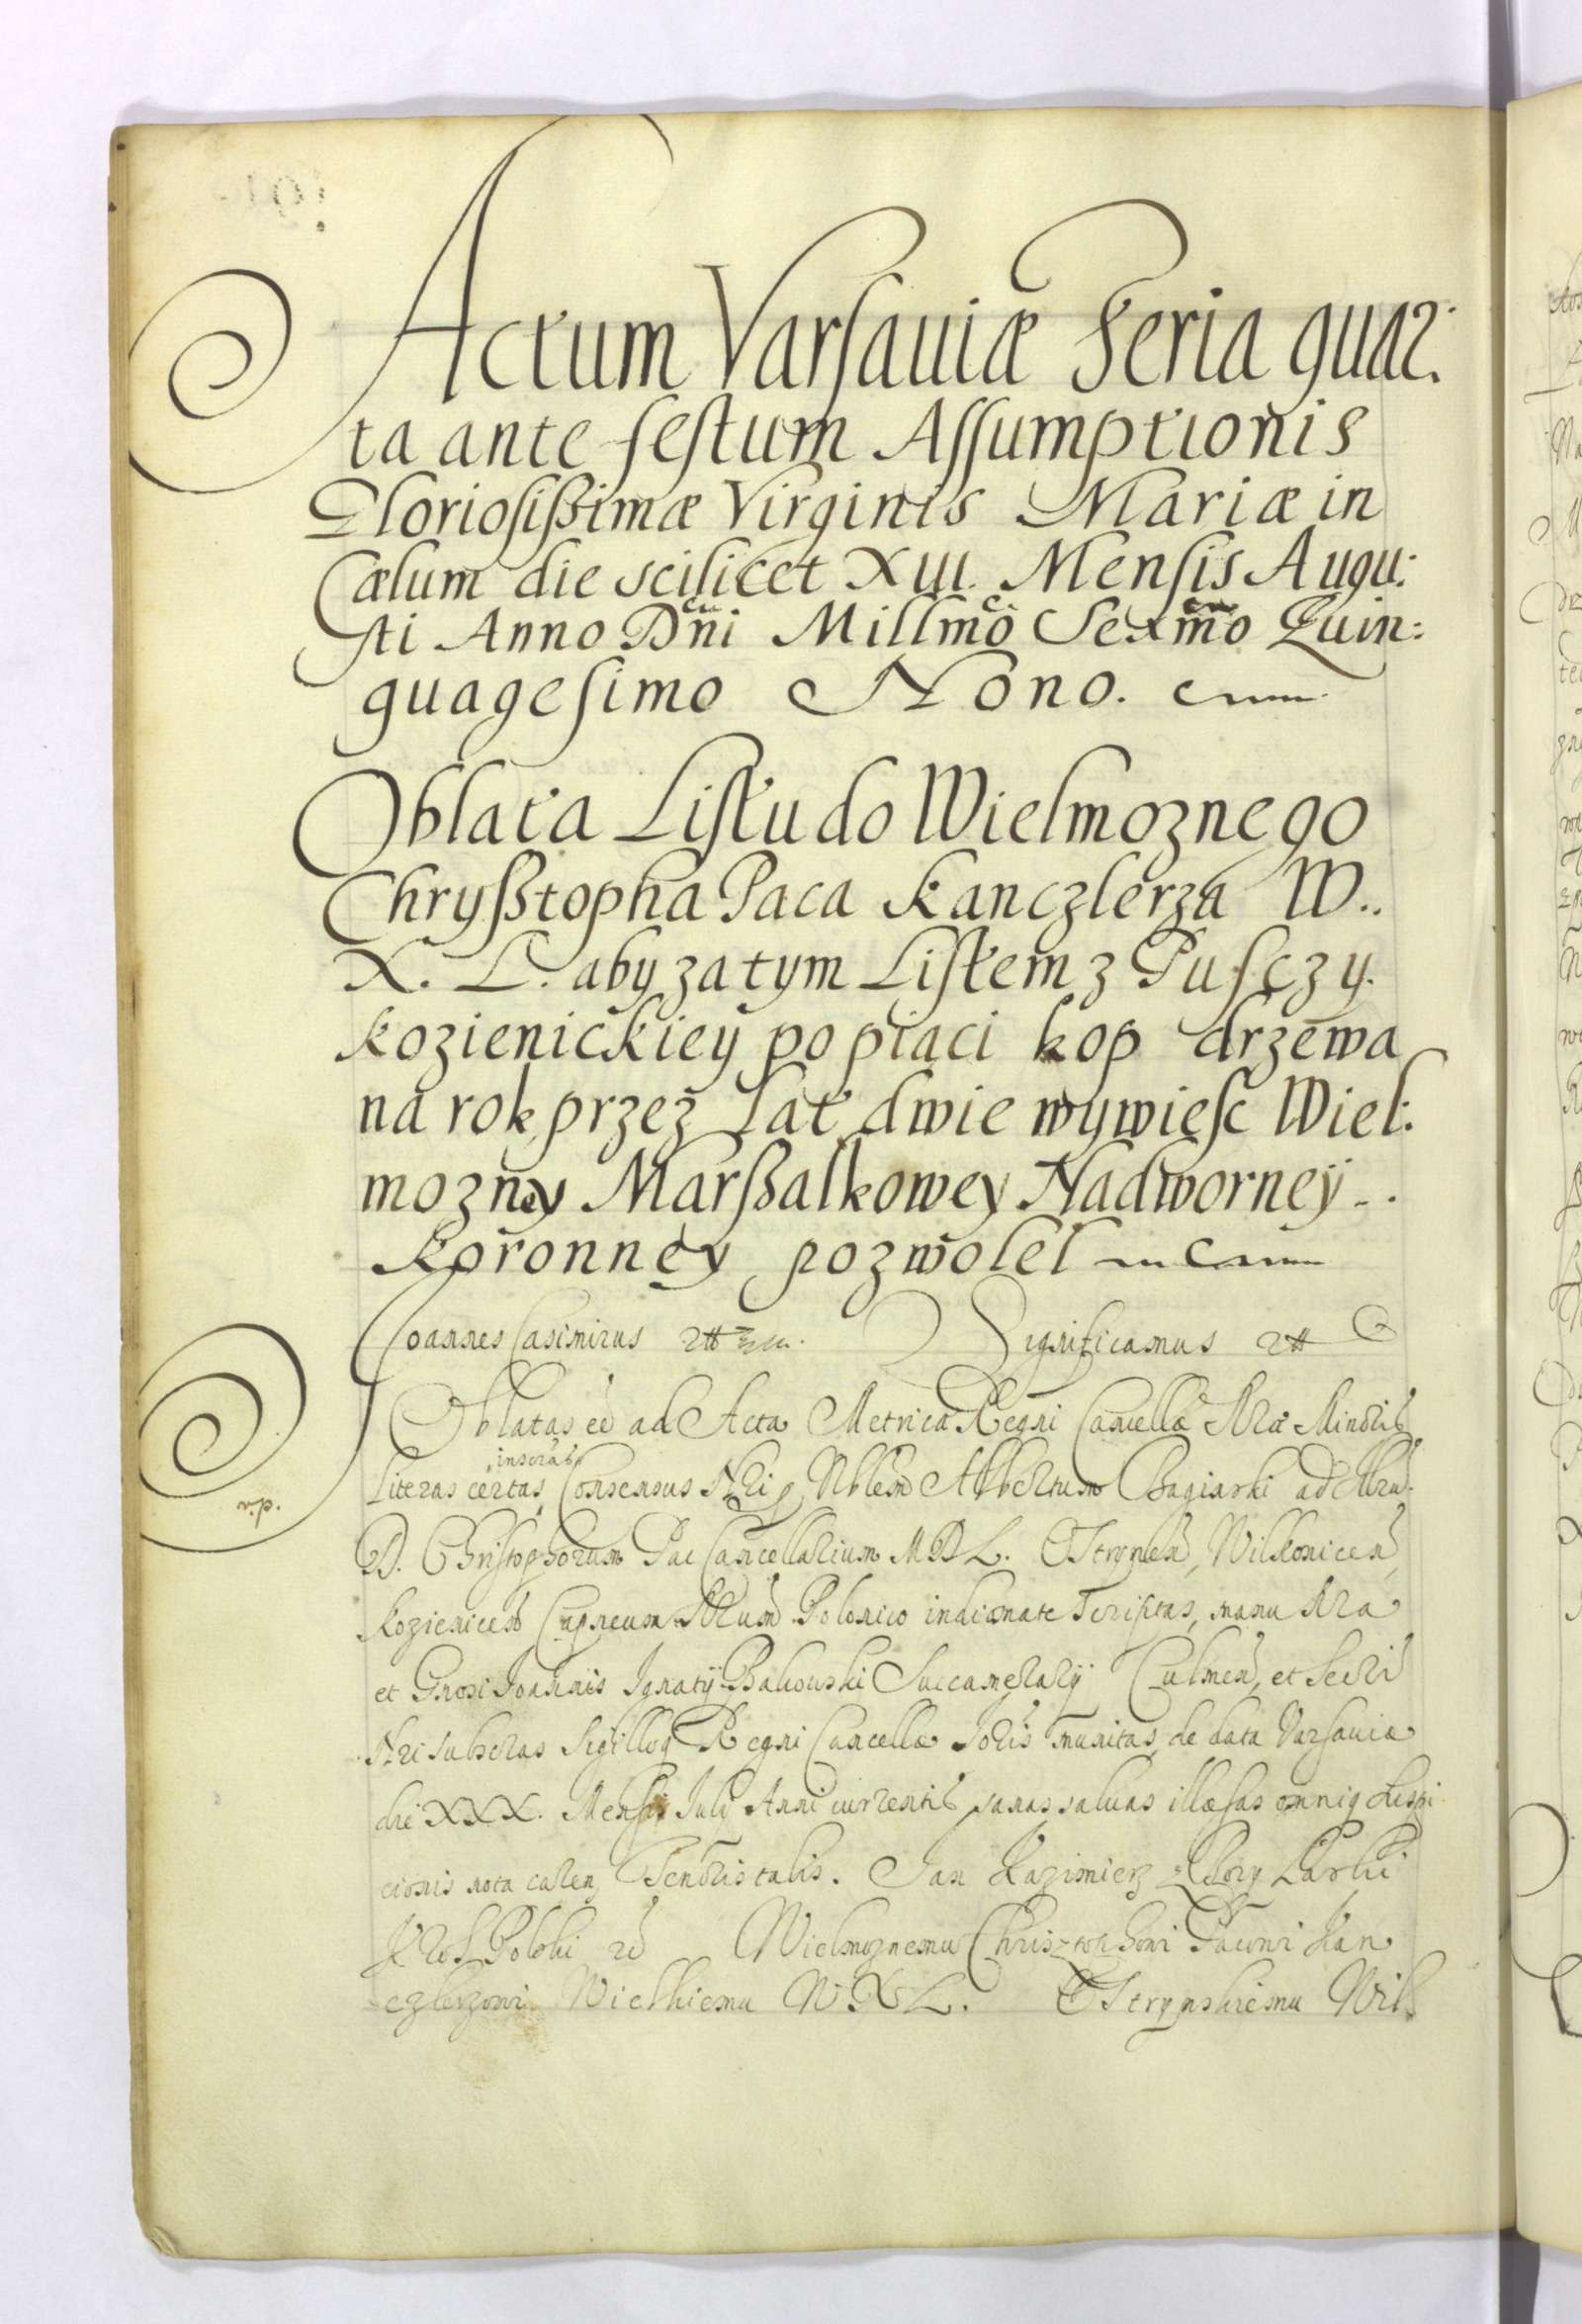 Actum Varſauiæ Feria quar:
ta ante feſtum Aſſumptionis
Glorioſißimæ Virginis Mariæ in
Cælum die scilicet XIII. Menſis Augu:
ſti Anno Dñi Millmõ Sexmõ Quin:
quageſimo Nono.
Oblata Liſtu do Wielmoznego
Chryßtopha Paca Kanczlerza W..
X. L. aby za tym Liſtem z Puſczy.
Kozienickiey po piąci kop drzewa
na rok przez Lat dwie wywieſc Wiel:
mozney Marßalkowey Nadworney
Koronney pozwolel
Joannes Casimirus Significamus
Oblatas eẽ ad Acta Metrica Regni Cancellæ Nræ Minoris
inscrãs
Literas certas Consensus Nri Nblem Albertum Bagiarki ad
D. Christophorum Pac Cancellarium M D L. Wilkonicen
Kozienicen Polonico indiomate Scriptas, manu Nra
et Gnosi Joannis Ignatÿ Bakowski Succamerarÿ Culmen, et Secri
Nri subscras Sigilloq Regni Cancellæ Noris munitas, de data Varsauiæ
die XXX. Mensis Julÿ Anni currentis sanas saluas illæsas omniq suspi
cionis nota caren Tenoris talis. Jan Kazimierz z Bozy Łaski
Krol Polski Wielmoznemu Chrisztophowi Pacowi Kan
czlerzowi Wielkiemu W X L. Wil